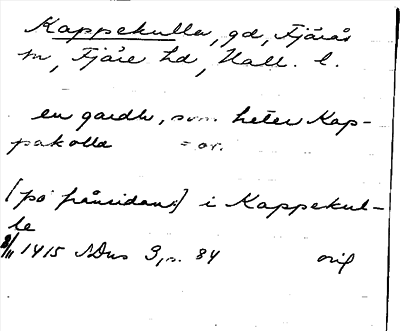 Kappekulla, gd, Fjärås
sn, Fjäre hd, Hall. l.
en gardh, som heter Kap-
pakolla = or.
[på frånsidan] i Kappekul-
le
8/11 1415 SDns 3, s. 84 orig